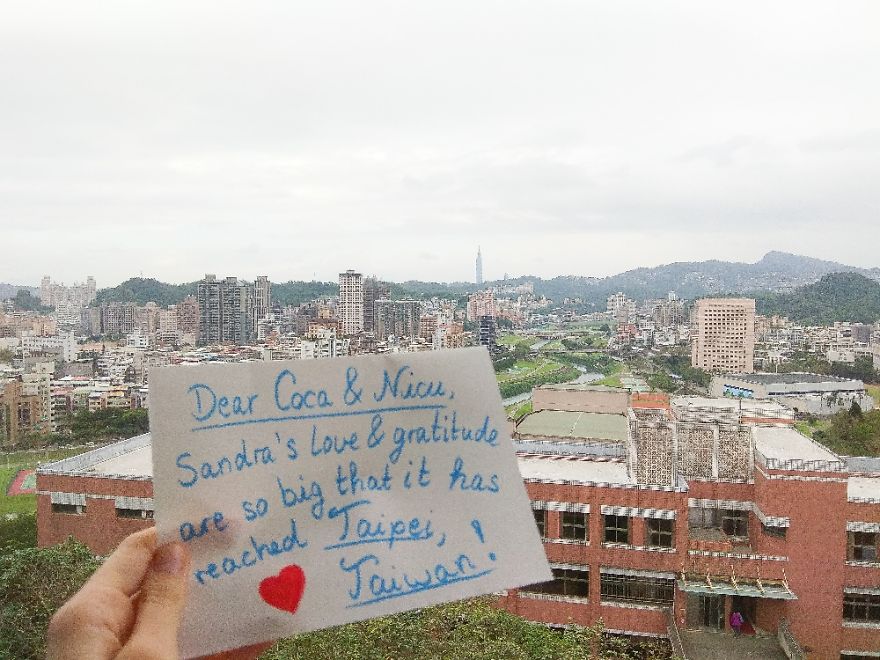 Dear Coca & Nicu,
Sandra's Love & gratitude
are so big that it has
reached Taipei,
Taiwan!